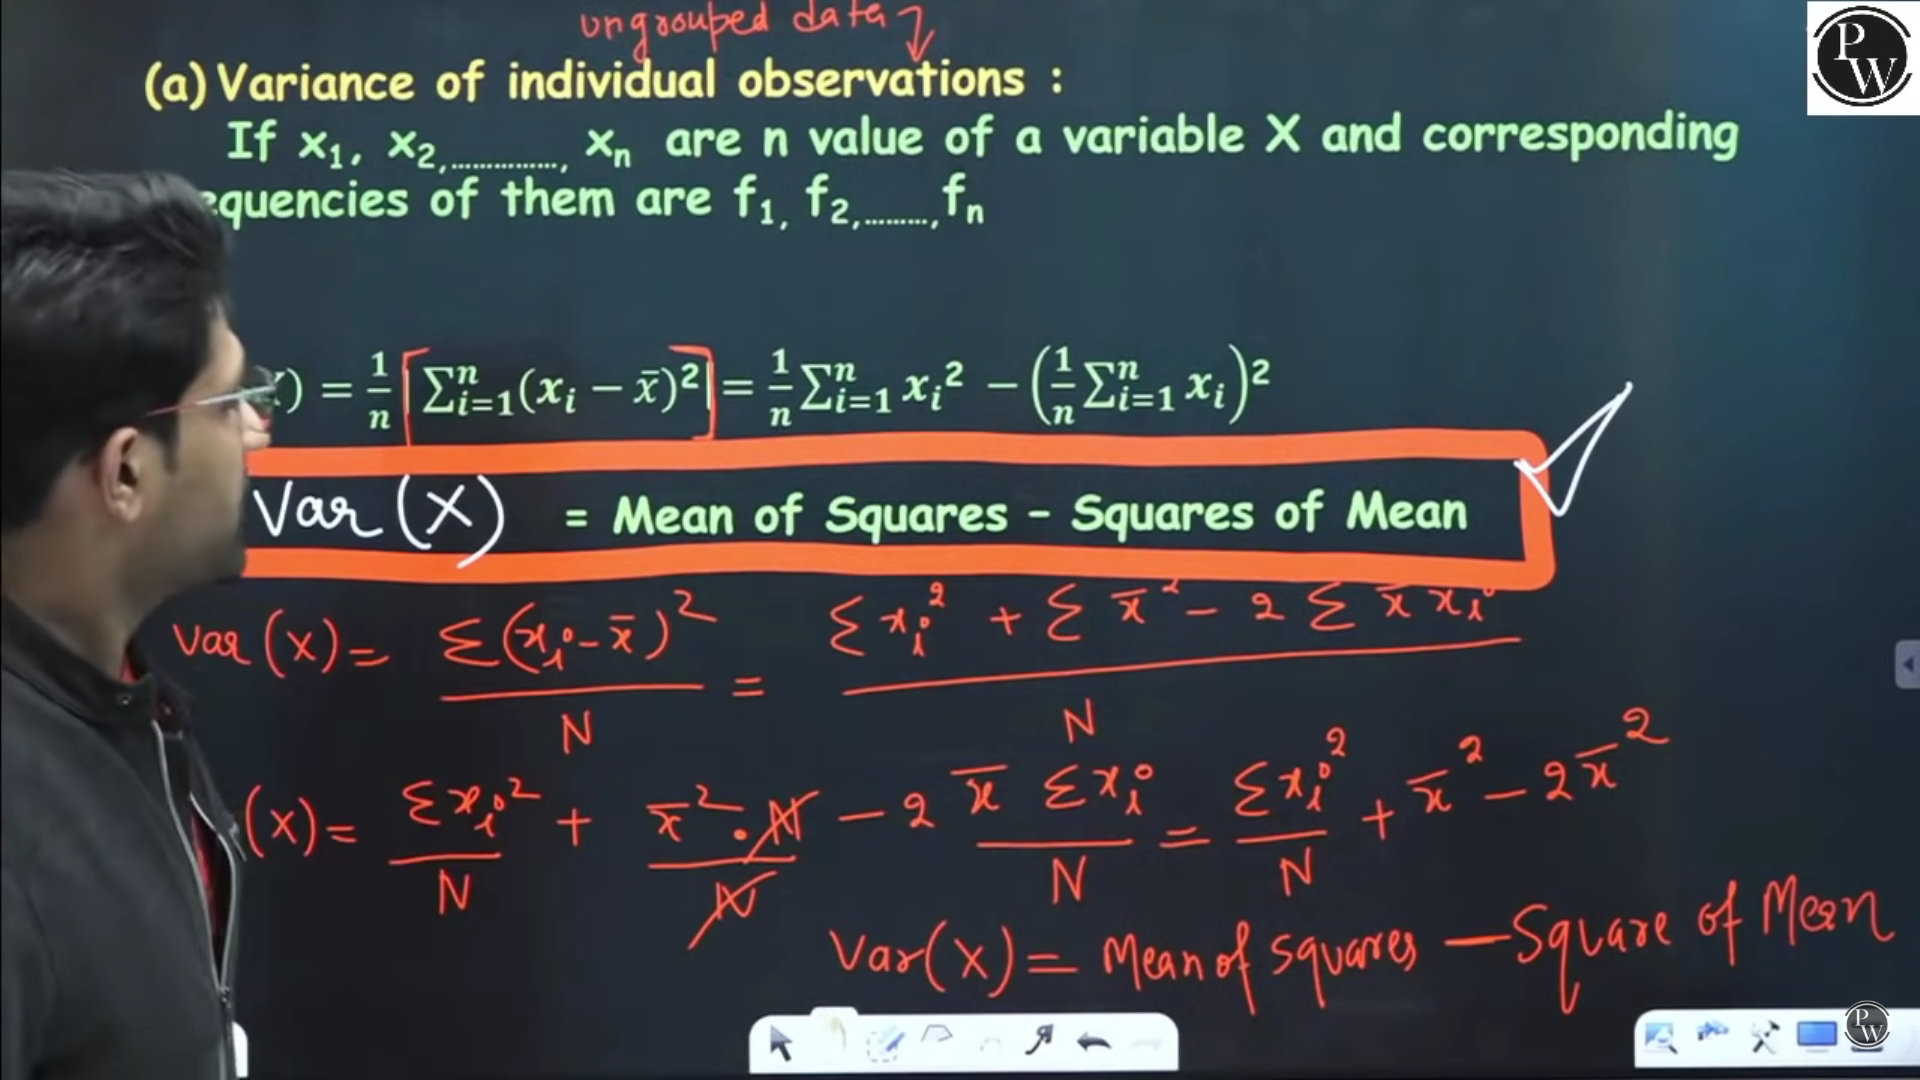 ungrouped data
P
W
(a) Variance of individual observations :
If x₁, x₂,..............., xₙ are n value of a variable X and corresponding
equencies of them are f₁, f₂,.........,fₙ
) = 1/n [∑ⁿᵢ₌₁(xᵢ − x̄)²] = 1/n ∑ⁿᵢ₌₁ xᵢ² − (1/n ∑ⁿᵢ₌₁ xᵢ)²
Var (X) = Mean of Squares - Squares of Mean
Var (x) = Σ(xᵢ - x̄)² / N = Σ xᵢ² + Σ x̄² - 2 Σ x̄ xᵢ / N
(x) = Σxᵢ² / N + x̄² . N / N - 2 x̄ Σxᵢ / N = Σxᵢ² / N + x̄² - 2x̄²
Var(x) = Mean of squares - Square of Mean
P
W